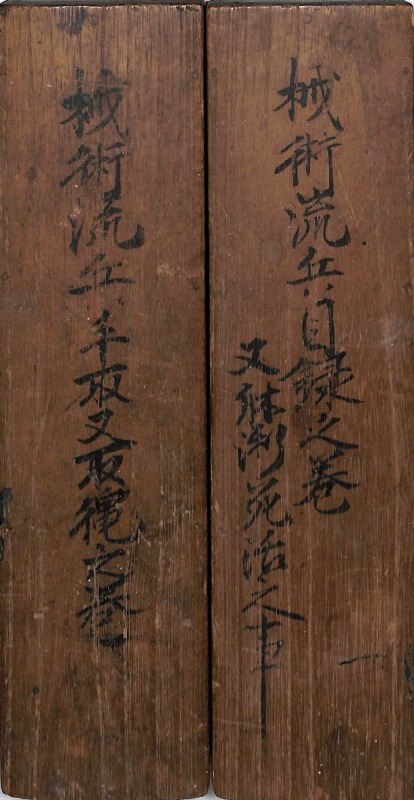 械術流兵目録之巻
又躰術死活之事
一
械術流兵手取又取縄之巻